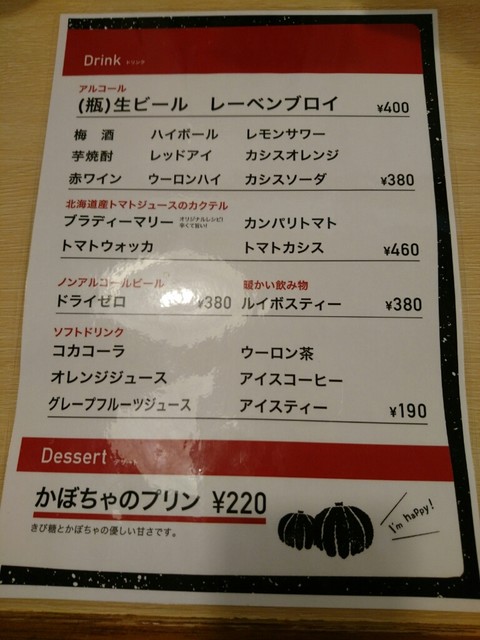 Drink ドリンク
アルコール
(瓶)生ビール レーベンブロイ ¥400
梅 酒 ハイボール レモンサワー
芋焼酎 レッドアイ カシスオレンジ
赤ワイン ウーロンハイ カシスソーダ ¥380
北海道産トマトジュースのカクテル
ブラディーマリー オリジナルレシピ! 辛くて旨い! カンパリトマト
トマトウォッカ トマトカシス ¥460
ノンアルコールビール 暖かい飲み物
ドライゼロ ¥380 ルイボスティー ¥380
ソフトドリンク
コカコーラ ウーロン茶
オレンジジュース アイスコーヒー
グレープフルーツジュース アイスティー ¥190
Dessert
かぼちゃのプリン ¥220
きび糖とかぼちゃの優しい甘さです。
I'm happy!